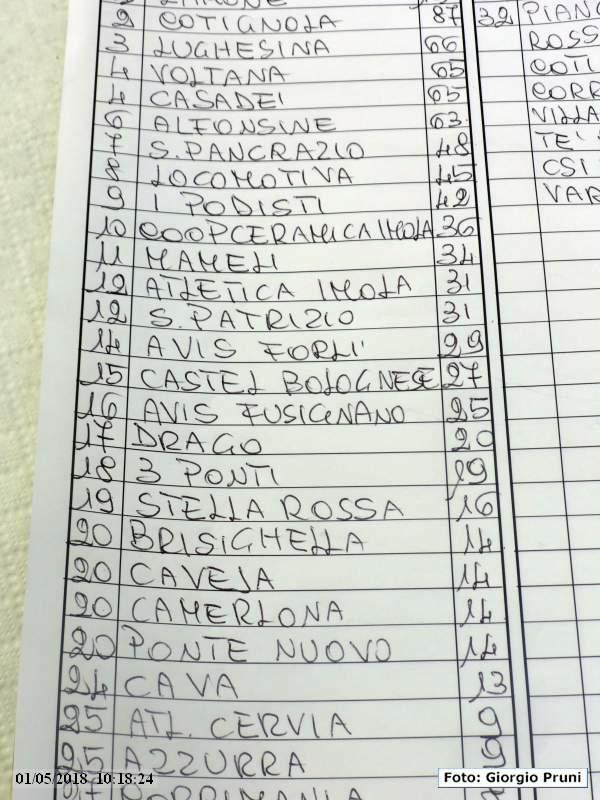 2 COTIGNOLA 87
3 LUGHESINA 66
4 VOLTANA 65
4 CASADEI 65
6 ALFONSINE 63
7 S. PANCRAZIO 48
8 LOCOMOTIVA 45
9 I PODISTI 42
10 COOPCERAMICA IMOLA 36
11 MAMELI 34
12 ATLETICA IMOLA 31
12 S. PATRIZIO 31
14 AVIS FORLI' 29
15 CASTEL BOLOGNESE 27
16 AVIS FUSIGNANO 25
17 DRAGO 20
18 3 PONTI 19
19 STELLA ROSSA 16
20 BRISIGHELLA 14
20 CAVEJA 14
20 CAMERLONA 14
20 PONTE NUOVO 14
24 CAVA 13
25 ATL. CERVIA 9
25 AZZURRA 9
32 PIANG
ROSS
COTI
CORR
VILLA
TE'
CSI
VAR
01/05/2018 10:18:24
Foto: Giorgio Pruni